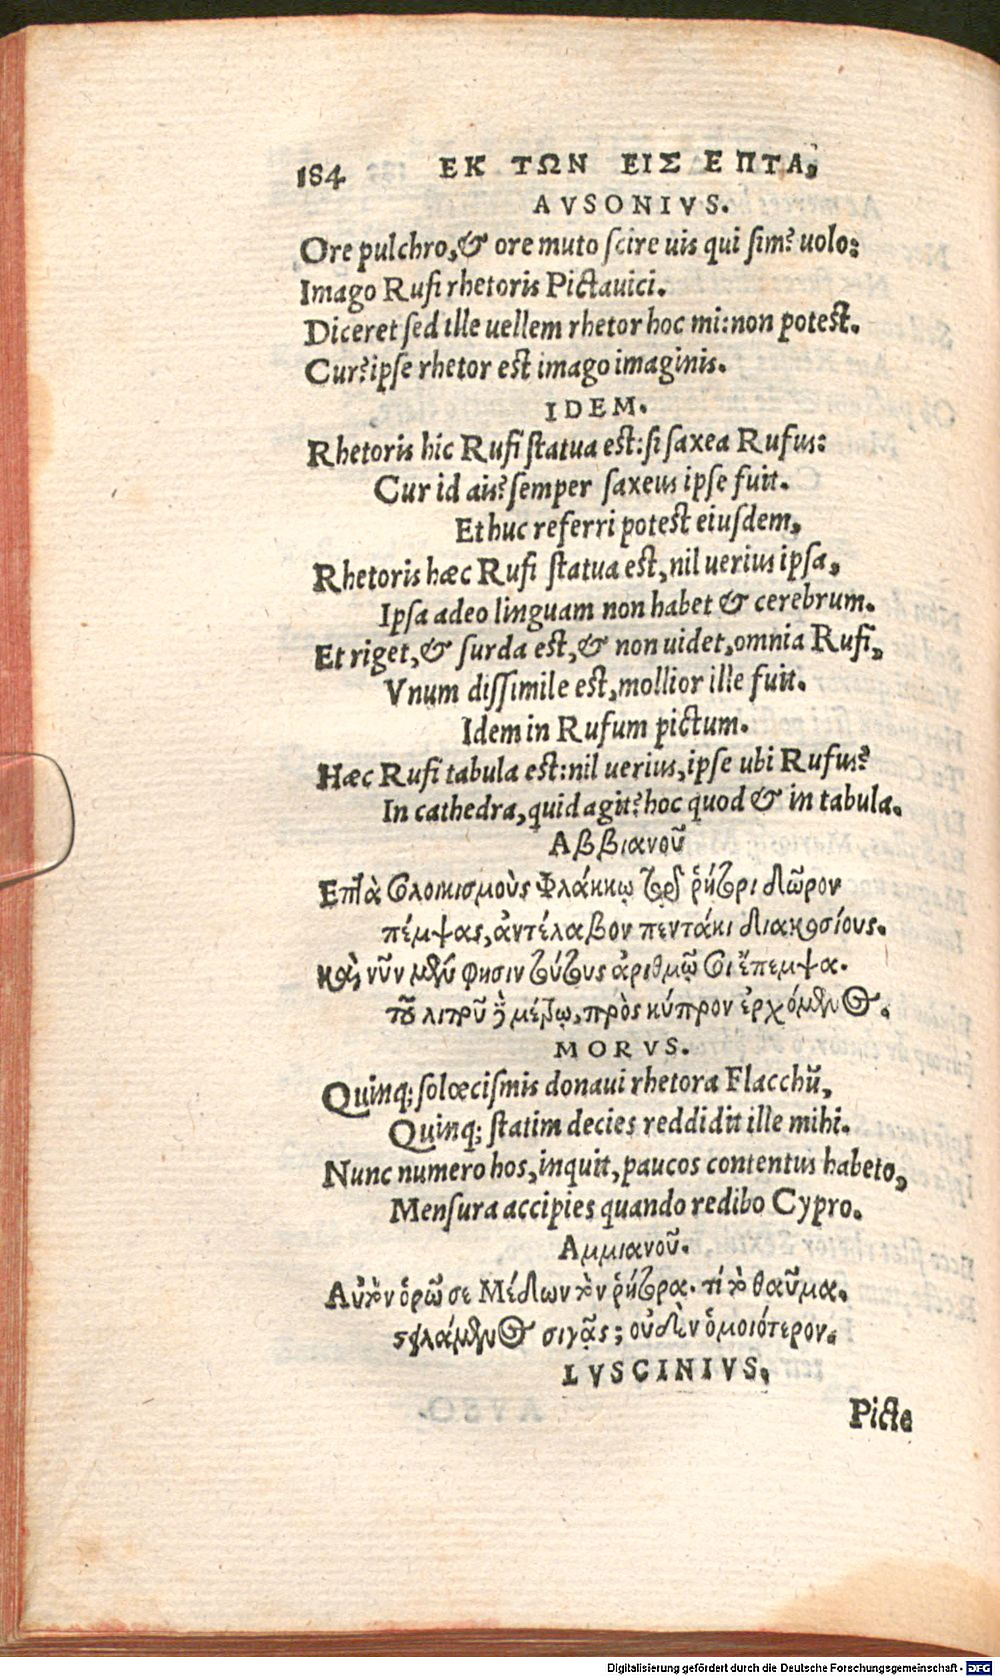 184 ΕΚ ΤΩΝ ΕΙΣ ΕΠΤΑ,
AVSONIVS.
Ore pulchro, & ore muto scire uis qui sim? uolo:
Imago Rufi rhetoris Pictauici.
Diceret sed ille uellem rhetor hoc mi: non potest.
Cur? ipse rhetor est imago imaginis.
IDEM.
Rhetoris hic Rufi statua est: si saxea Rufus:
Cur id ais? semper saxeus ipse fuit.
Et huc referri potest eiusdem,
Rhetoris hæc Rufi statua est, nil uerius ipsa,
Ipsa adeo linguam non habet & cerebrum.
Et riget, & surda est, & non uidet, omnia Rufi,
Vnum dissimile est, mollior ille fuit.
Idem in Rufum pictum.
Hæc Rufi tabula est: nil uerius, ipse ubi Rufus?
In cathedra, quid agit? hoc quod & in tabula.
Αββιανοῦ
Επτὰ σολοικισμοὺς Φλάκκῳ τῷ ῥήτορι δῶρον
πέμψας, ἀντέλαβον πεντάκι διακοσίους.
καὶ νῦν μὲν φησιν τούτους ἀριθμῷ σοι ἔπεμψα.
τοῦ λιποῦ δὲ μέτρῳ, πρὸς κύπρον ἐρχόμενος.
MORVS.
Quinq; solœcismis donaui rhetora Flacchũ,
Quinq; statim decies reddidit ille mihi.
Nunc numero hos, inquit, paucos contentus habeto,
Mensura accipies quando redibo Cypro.
Αμμιανοῦ.
Αὐτὸν ὁρῶ σε Μέδων τὸν ῥήτορα. τί τὸ θαῦμα.
στελάμενος σιγᾷς; οὐδὲν ὁμοιότερον.
LVSCINIVS.
Picte
Digitalisierung gefördert durch die Deutsche Forschungsgemeinschaft - DFG